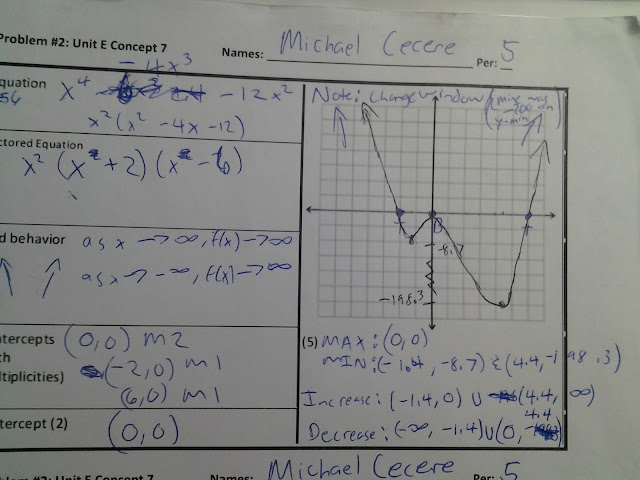 Problem #2: Unit E Concept 7
Names: Michael Cecere Per: 5
- 4x³
quation x⁴ - 12x²
x²(x² - 4x - 12)
ctored Equation
x² (x + 2) (x - 6)
d behavior as x → ∞, f(x) → ∞
as x → -∞, f(x) → ∞
tercepts (0,0) m2
th (-2,0) m1
tiplicities) (6,0) m1
tercept (2) (0,0)
Note: change window
y-min
-8.7
-198.3
(5) MAX: (0,0)
MIN: (-1.4, -8.7) & (4.4, -198.3)
Increase: (-1.4, 0) ∪ (4.4, ∞)
4.4
Decrease: (-∞, -1.4) ∪ (0,
blem #2: Unit E Concept 7
Names: Michael Cecere Per: 5